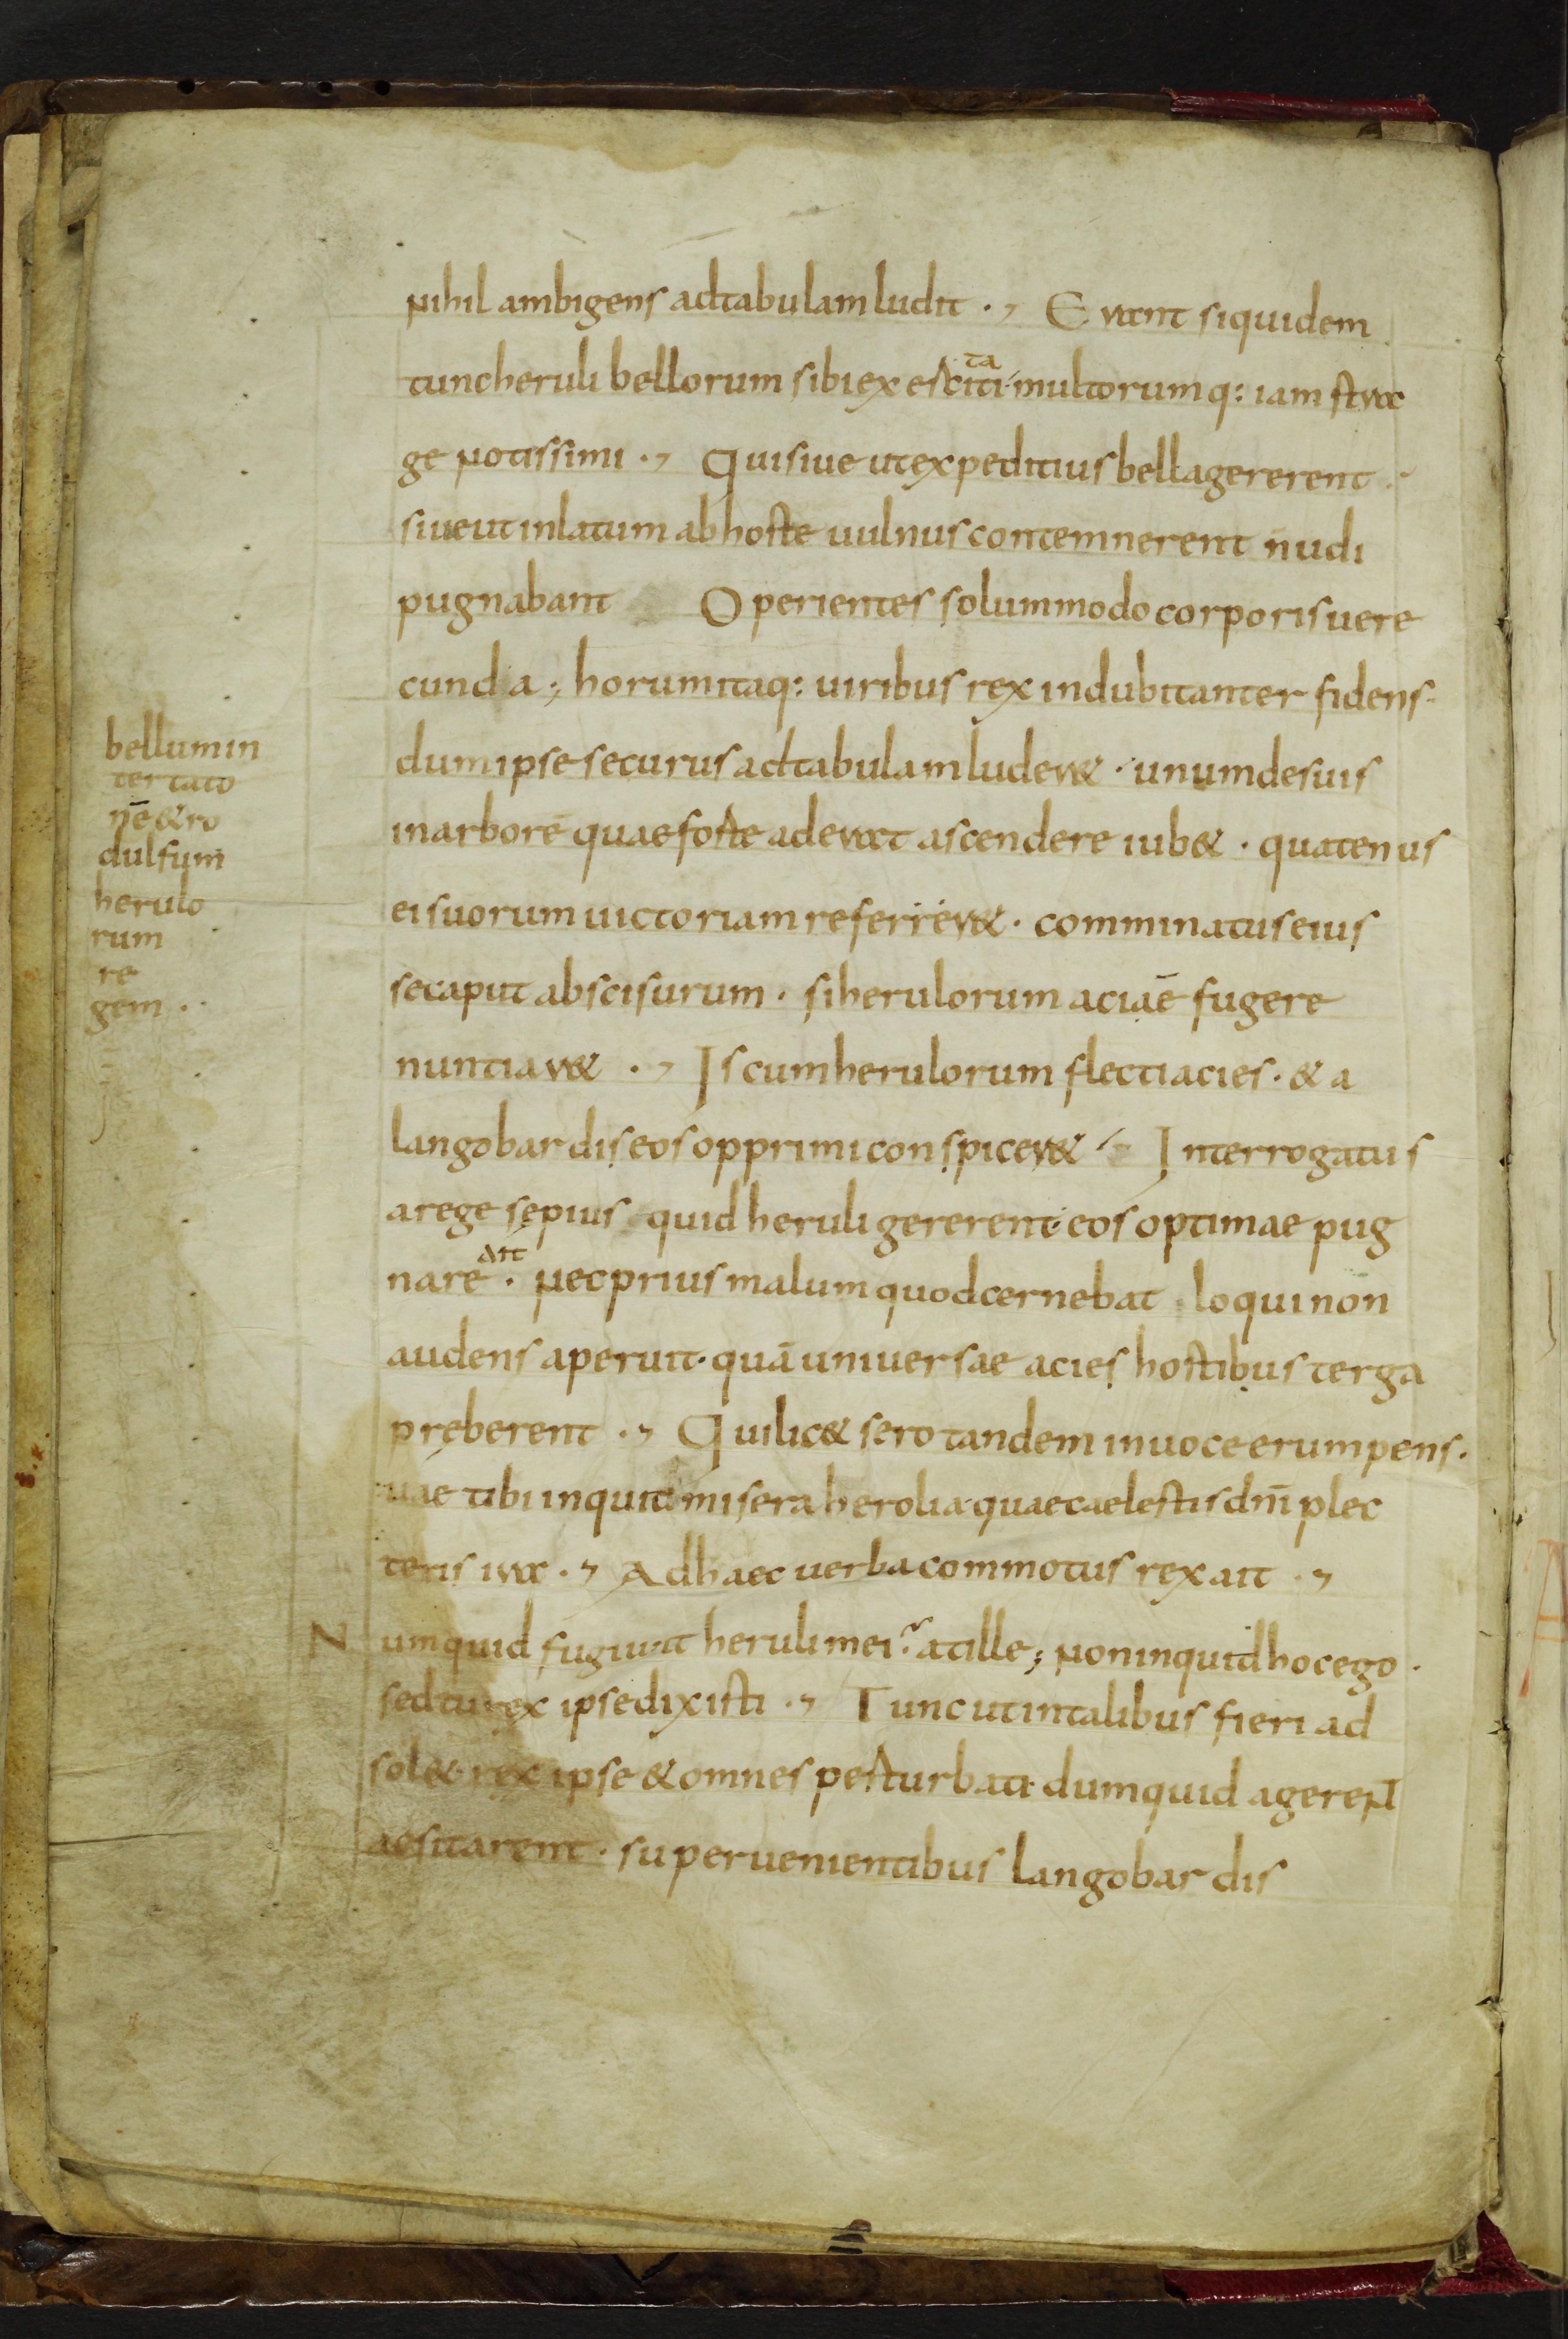 nihil ambigens ad tabulam ludit · Erant siquidem
tunc heruli bellorum sibi exerciti ta multorumq: iam stra
ge notissimi · Qui siue ut expeditius bella gererent ·
siue ut inlatum ab hoste uulnus contemnerent nudi
pugnabant Operientes solummodo corporis uere
cunda ; horum itaq: uiribus rex indubitanter fidens ·
dum ipse securus ad tabulam luder& · unum de suis
in arborē quae forte aderat ascendere iub& · quatenus
ei suorum uictoriam referrer& · comminatus eius
se caput abscisurum · si herulorum aciaē fugere
nuntiar& · Is cum herulorum flecti acies · & a
langobardis eos opprimi conspicer& · Interrogatus
a rege sępius quid heruli gererent · eos optimae pug
nare ait · nec prius malum quod cernebat loqui non
audens aperuit · quā uniuersae acies hostibus terga
pręberent · Qui lic& sero tandem in uoce erumpens ·
uae tibi inquit misera herolia · quae caelestis dm̄ plec
teris ira · Ad haec uerba commotus rex ait ·
Numquid fugiunt heruli mei? at ille ; non inquid hoc ego ·
sed tu rex ipse dixisti · Tunc ut in talibus fieri ad
sol& · rex ipse & omnes perturbati · dum quid agerent
aesitarent · superuenientibus langobardis
bellum in
ter tato
nē & ro
dulfum
herulo
rum
re
gem ·